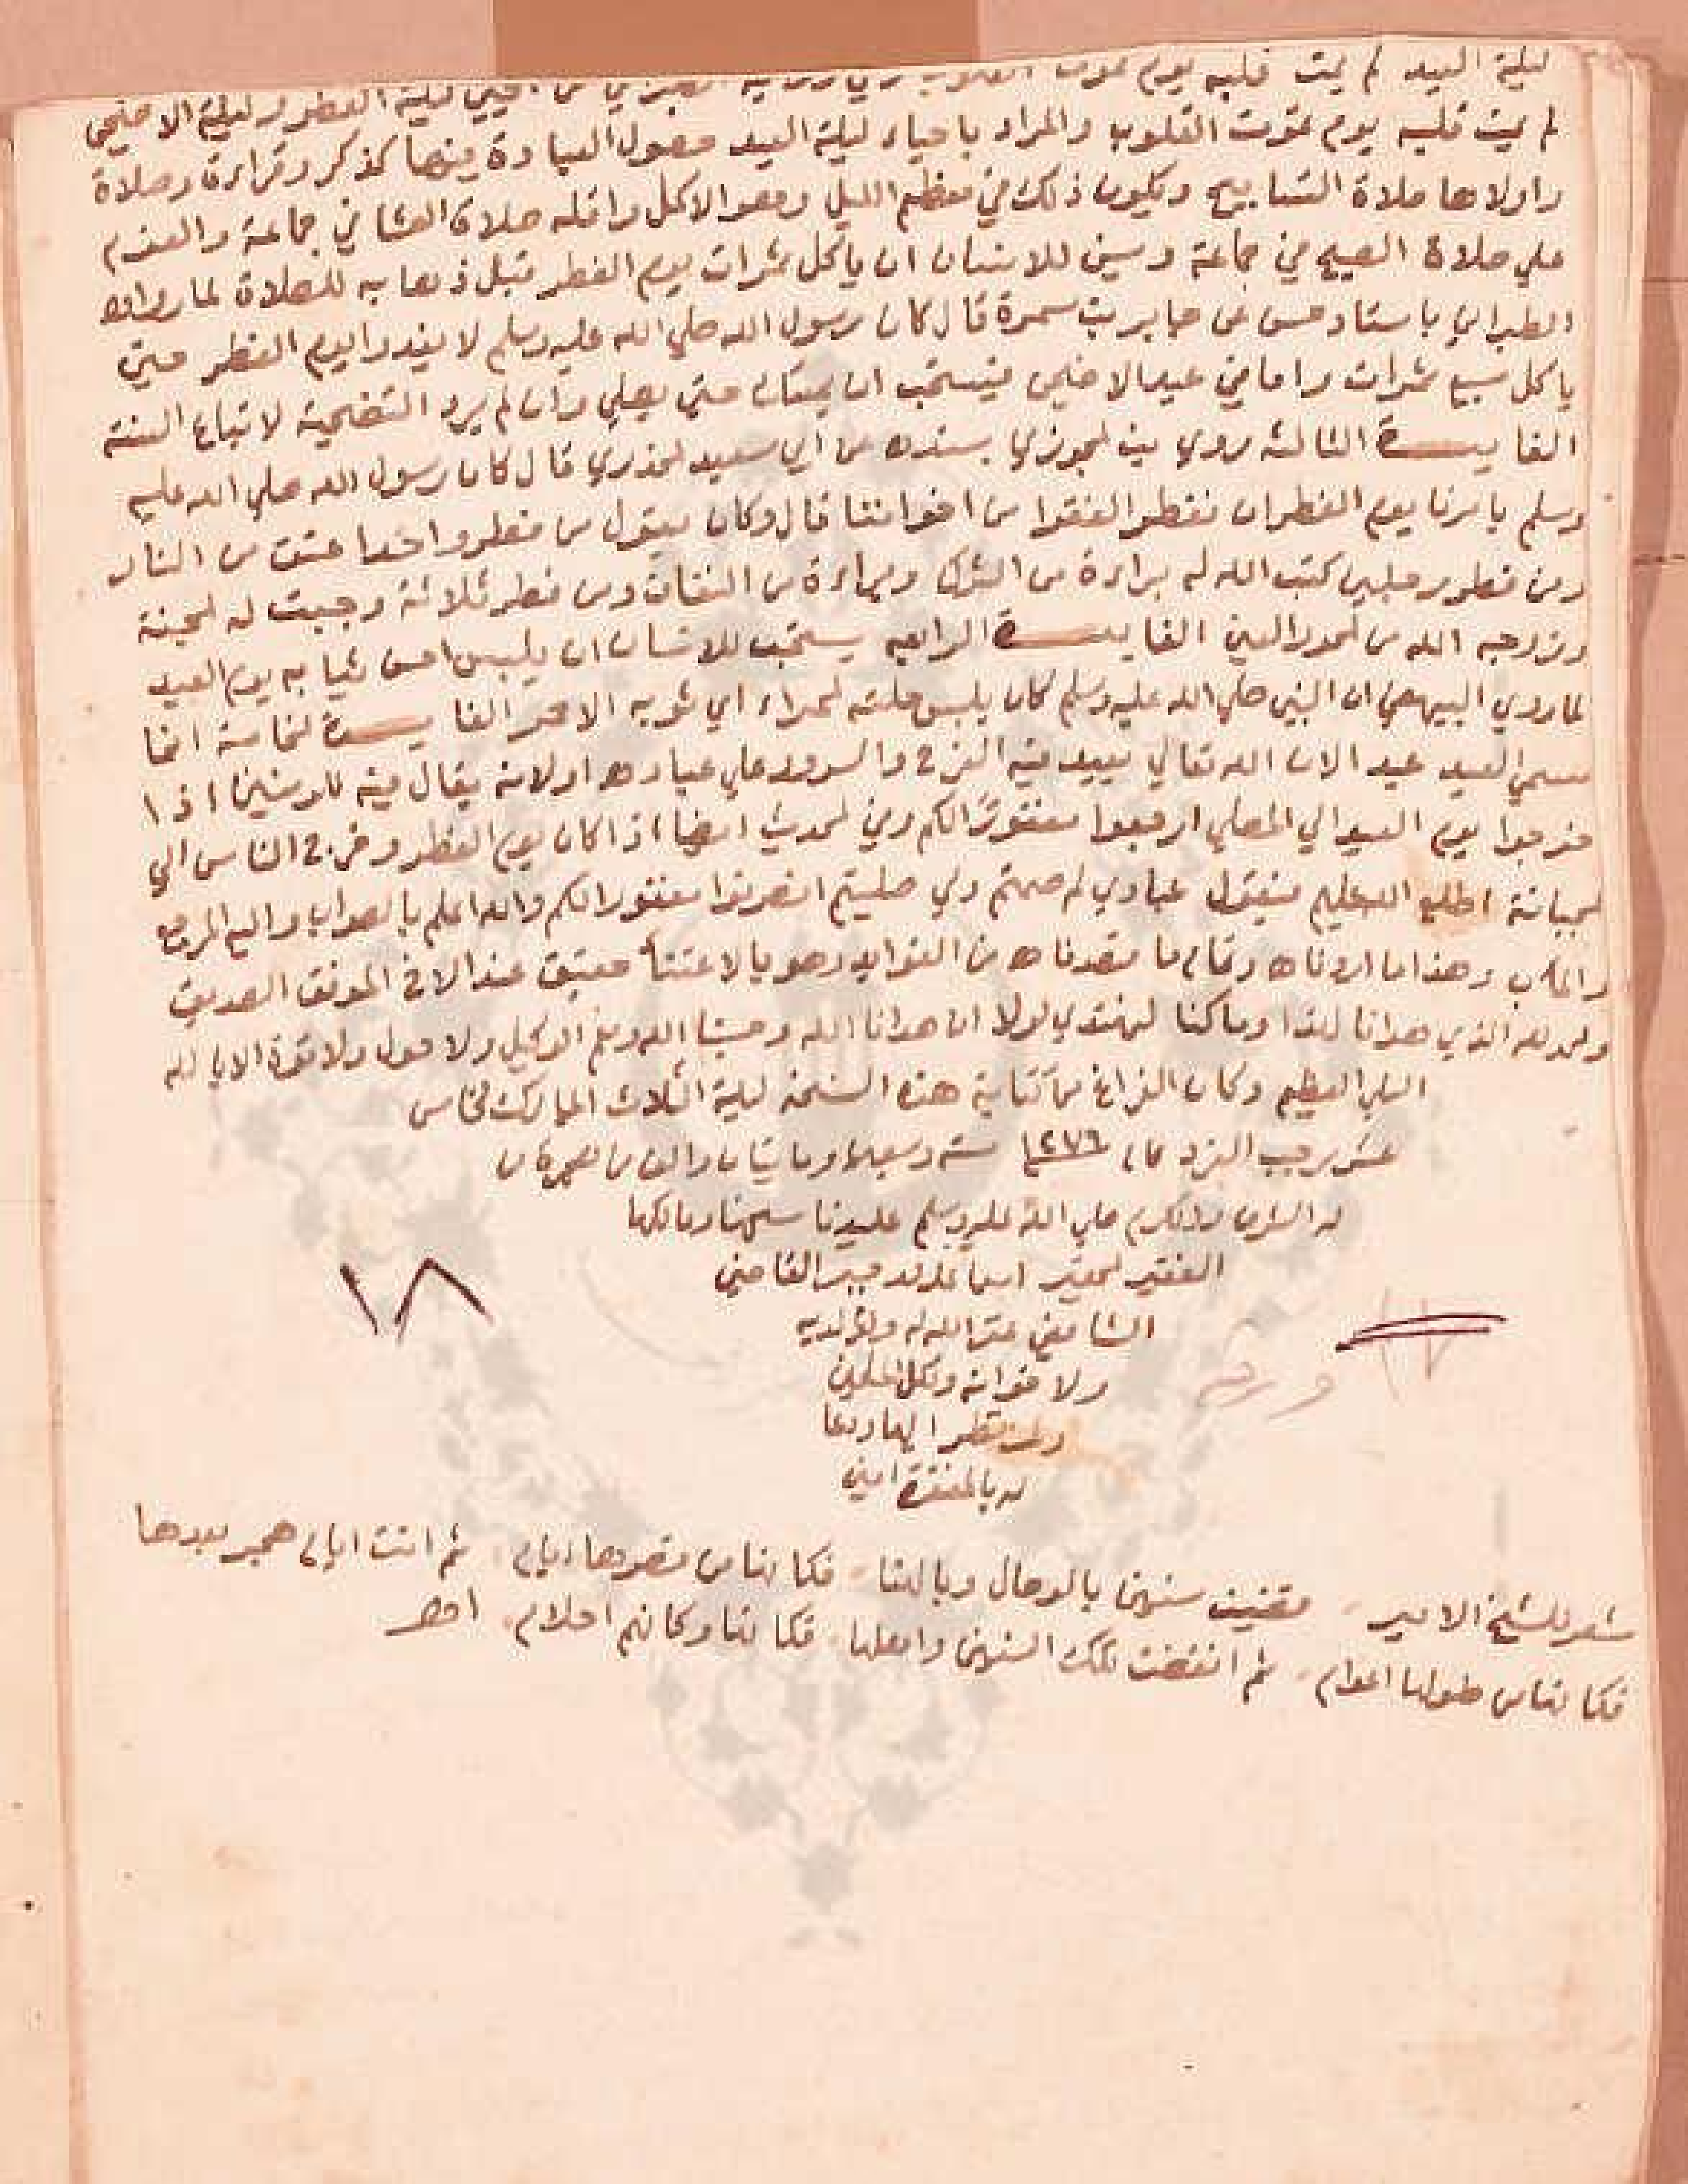 ليلة العيد لم يمت قلبه يوم تموت القلوب وفي رواية للطبراني من احيي ليلة الفطر وليلة الاضحي
لم يمت قلبه يوم تموت القلوب والمراد باحياء ليلة العيد حصول العبادة فيها كذكر وقراءة وصلاة
واولاها صلاة التسابيح ويكون ذلك في معظم الليل وهو الاكمل واقله صلاة العشا في جماعة والعزم
علي صلاة الصبح في جماعة ويسن للانسان ان ياكل تمرات يوم الفطر قبل ذهابه للصلاة لما رواه
الطبراني باسناد حسن عن جابر بن سمرة قال كان رسول الله صلي الله عليه وسلم لا يغدوا يوم الفطر حتي
ياكل سبع تمرات واما في عيد الاضحي فيستحب ان يمسك حتي يصلي وان لم يرد التضحية لاتباع السنة
الفايدة الثالثه روي بن الجوزي بسنده عن ابي سعيد الخدري قال كان رسول الله صلي الله عليه
وسلم يامرنا يوم الفطر ان نفطر الفقرا من اخواننا قال وكان يقول من فطر واحدا عتق من النار
ومن فطر رجلين كتب الله له براءة من الشرك وبراءة من النفاق ومن فطر ثلاثة وجبت له الجنة
وزوجه الله من الحور العين الفايدة الرابعه يستحب للانسان ان يلبس احسن ثيابه يوم العيد
لما روي البيهقي ان النبي صلي الله عليه وسلم كان يلبس حلته الحمراء اي ثوبه الاحمر الفايدة الخامسة انما
سمي العيد عيد الان الله تعالي يعيد فيه الفرح والسرور علي عباده اولانه يقال فيه للمومنين اذا
خرجوا يوم العيد الي المصلي ارجعوا مغفورًا لكم وفي الحديث ايضا اذا كان يوم الفطر وخرج الناس الي
الجبانة اطلع الله عليهم فيقول عبادي لي صمتم ولي صليتم انصرفوا مغفورا لكم والله اعلم بالصواب واليه المرجع
والماب وهذا ما اردناه وتمام ما قصدناه من الفوايد وهو بالاعتنا حقيق عند الاخ الموفق الصديق
والحمد لله الذي هدانا لهذا وما كنا لنهتدي لولا ان هدانا الله وحسبنا الله ونعم الوكيل ولا حول ولا قوة الا بالله
العلي العظيم وكان الفراغ من كتابة هذه النسخة ليلة الثلاث المبارك خامس
عشر رجب الفرد عام ١٢٧٦ ستة وسبعين ومايتان والف من هجرة من
له الشرف والكرم صلي الله عليه وسلم علي يدنا سخها ومالكها
الفقير الحقير القاضي
الشافعي غفر الله له ولوالديه
ولاخوانه ولكل المسلمين
ولمن نظر اليها ودعا
له بالمغفرة امين
١٨
شعر للشيخ الامير مضيت سنون بالوصال وبالهنا فكانها من قصرها ايام ثم انثت ايام هجر بعدها
فكانها من طولها اعوام ثم انقضت تلك السنون واهلها فكانها وكانهم احلام اهـ